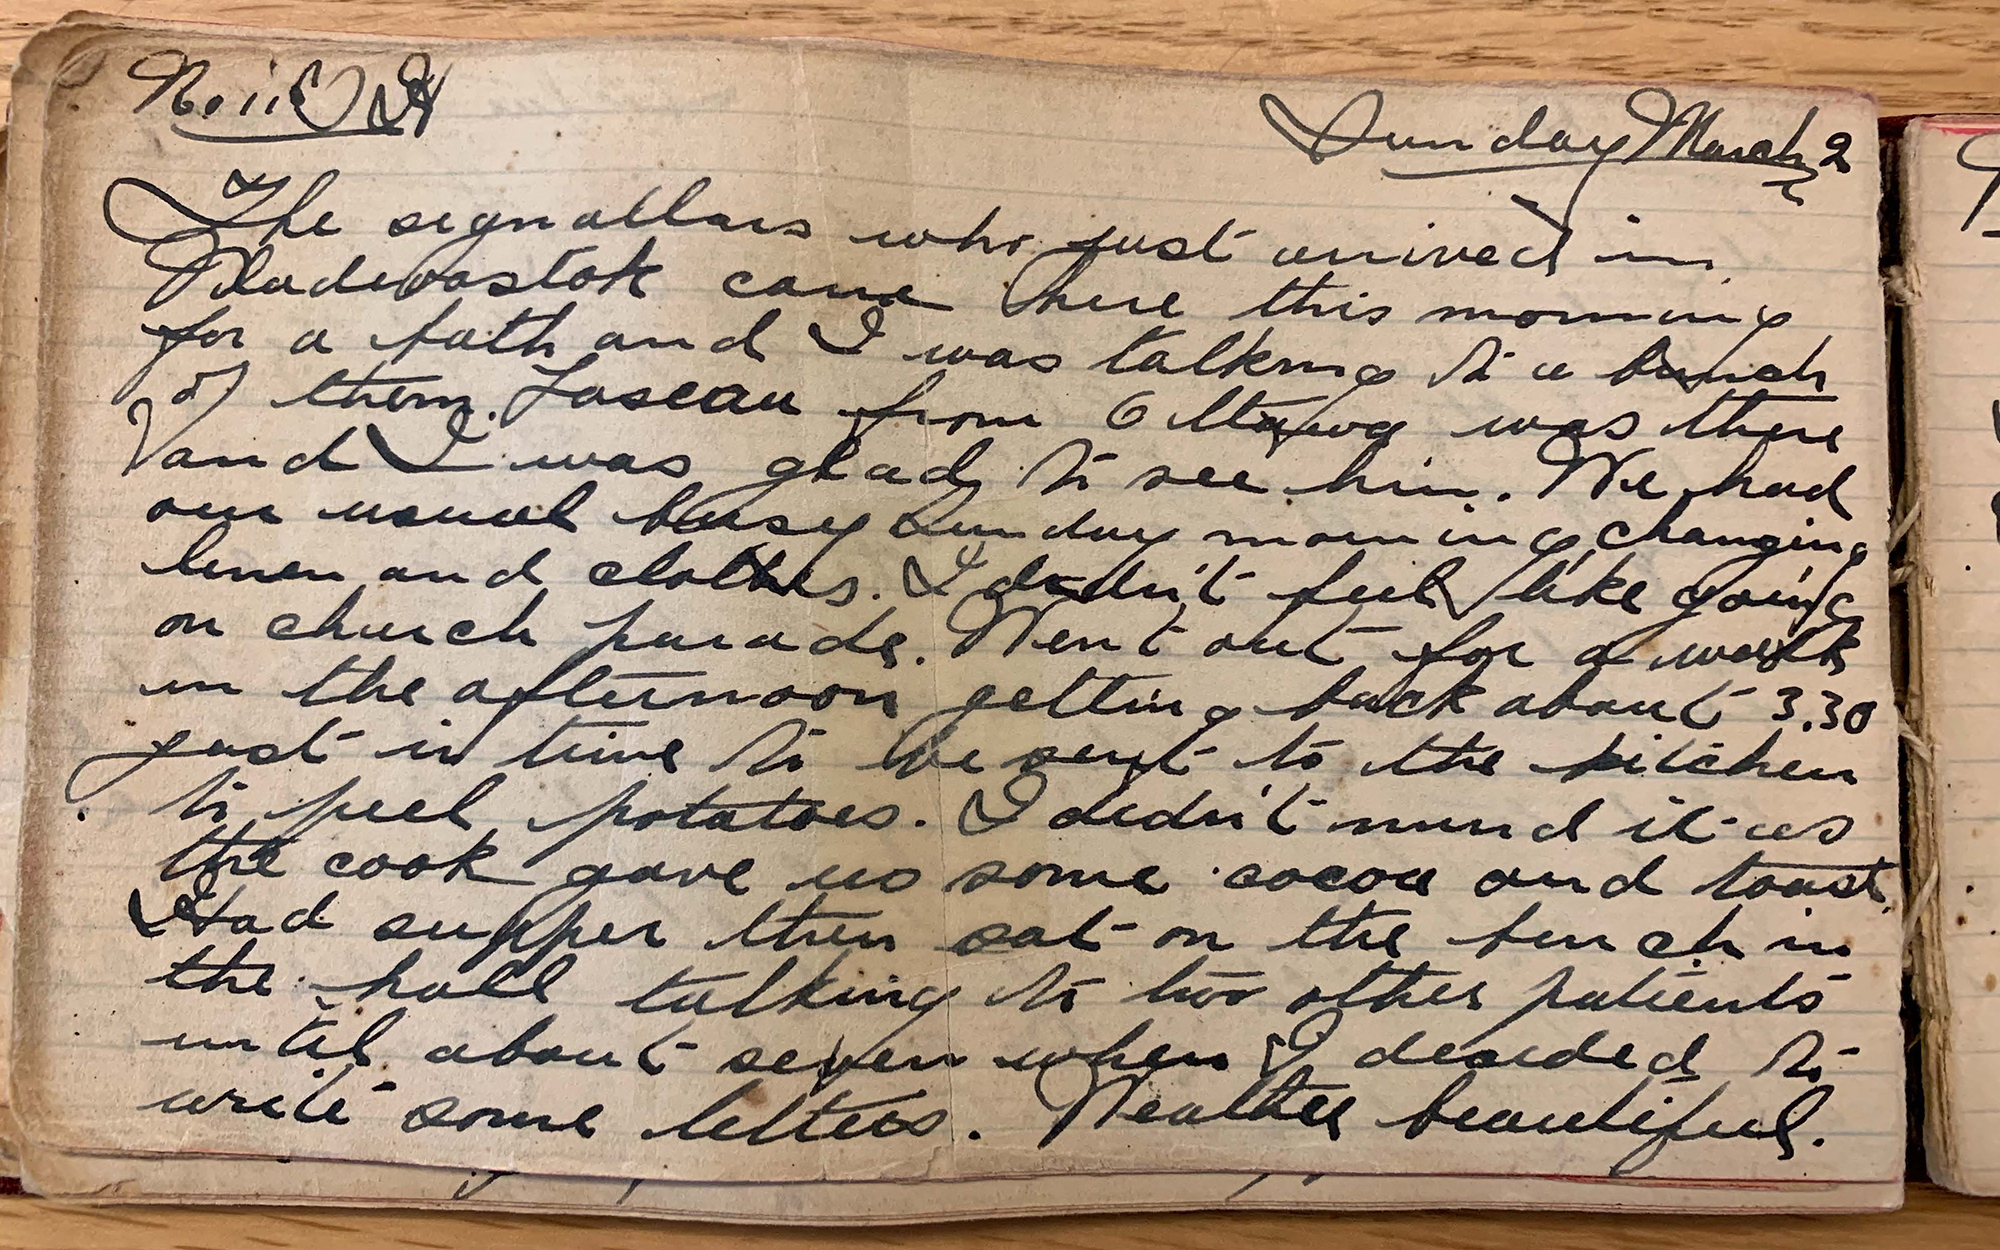 No. 11 Sunday March 2
The signallars who just arrived in
Vladevostok came here this morning
for a bath and I was talking to a bunch
of them. Loseau from Ottawa was there
and I was glad to see him. We had
our usual busy Sunday morning changing
linen and clothes. I didn't feel like going
on church parade. Went out for a walk
in the afternoon getting back about 3.30
just in time to be sent to the kitchen
to peel potatoes. I didn't mind it as
the cook gave us some cocoa and toast.
Had supper then sat on the bench in
the hall talking to two other patients
until about seven when I decided to
write some letters. Weather beautiful.